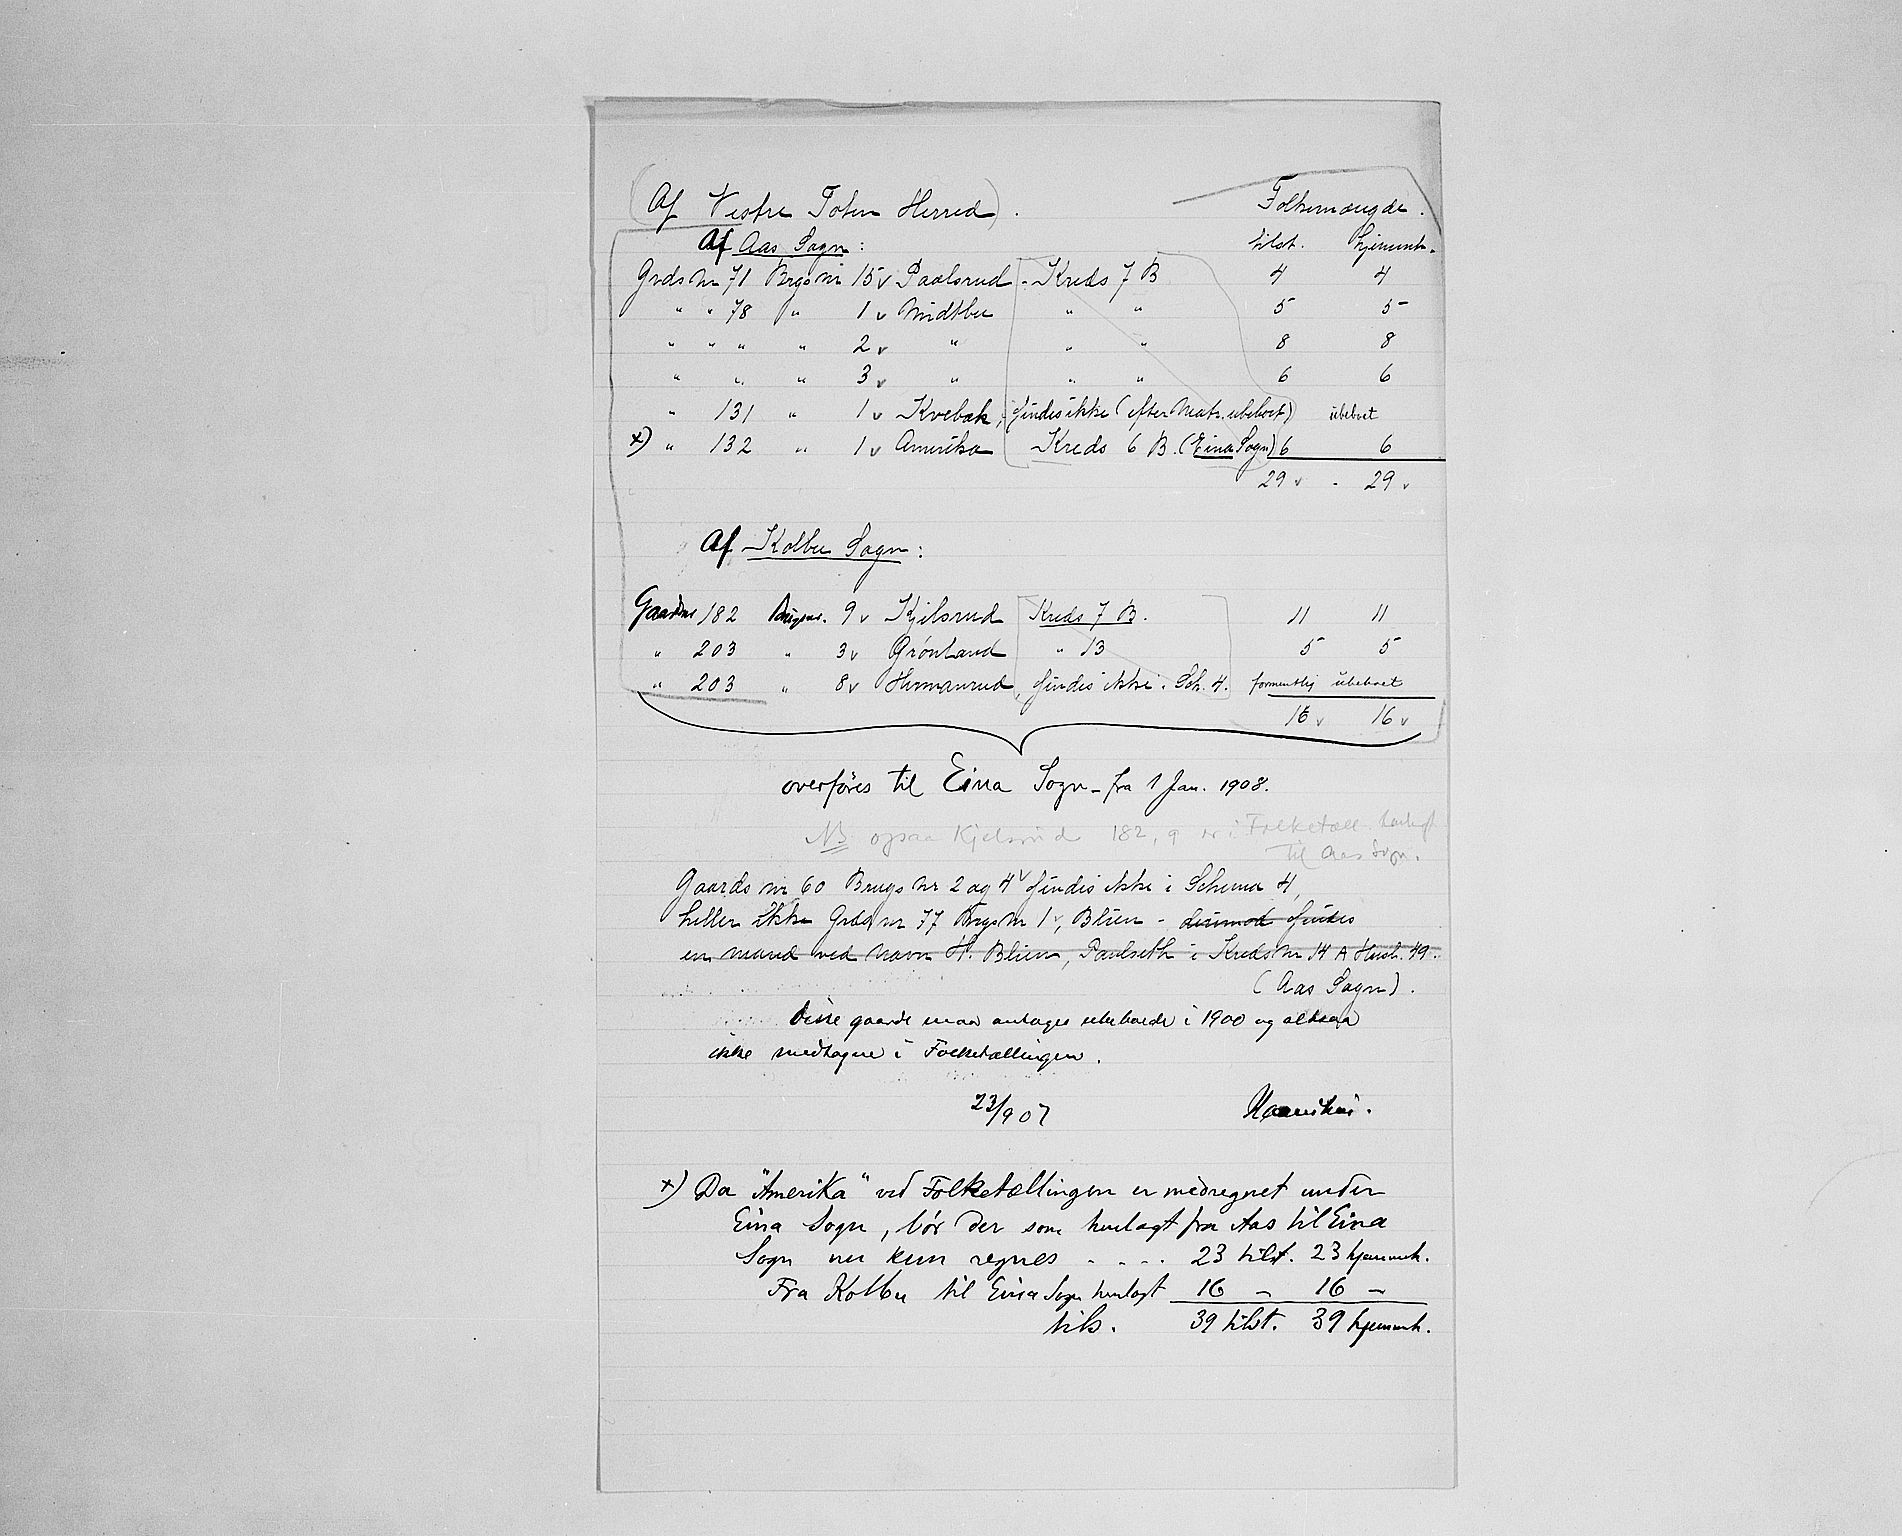 (Af Vestre Toten Herred). Folkemængde.
Af Aas Sogn: tilst. hjemmh.
Grds Nr 71 Brgs nr 15 v Paalsrud - Kreds 7 B 4 4
" " 78 " 1 v Midtbu " " 5 5
" " " " 2 v " " " 8 8
" " " 3 v " " " 6 6
" 131 " 1 v Kvebæk, findes ikke (efter Matr. ubeboet) ubeboet
x) " 132 " 1 v Amerika Kreds 6 B. (Eina Sogn) 6 6
29 v - 29 v
Af Kolbu Sogn:
Gaardnr 182 Brugsnr. 9 v Kjelsrud Kreds 7 B. 11 11
" 203 " 3 v Grønland " 13 5 5
" 203 " 8 v Hermanrud, findes ikke i Sch. 4. formentlig ubeboet
16 v 16 v
overføres til Eina Sogn - fra 1 Jan. 1908.
NB ogsaa Kjelsrud 182, 9 er i Folketæll. henlagt
til Aas Sogn.
Gaards nr 60 Brugs nr 2 og 4 v findes ikke i Schema 4,
heller ikke Grds nr 77 Brgs Nr 1 v, Blien - derimod findes
en mand ved navn H. Blien, Paulseth i Kreds Nr 14 A Husl. 49.
(Aas Sogn).
Disse gaarde maa antages ubeboede i 1900 og altsaa
ikke medtagne i Folketællingen.
23/9 07
x) Da "Amerika" ved Folketællingen er medregnet under
Eina Sogn, bør der som henlagt fra Aas til Eina
Sogn nu kun regnes - - - - 23 tilst. 23 hjemmh.
Fra Kolbu til Eina Sogn henlagt 16 - 16 -
tils. 39 tilst. 39 hjemmh.